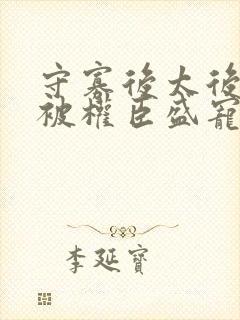 守寡後太後
被權臣盛寵
李延寶